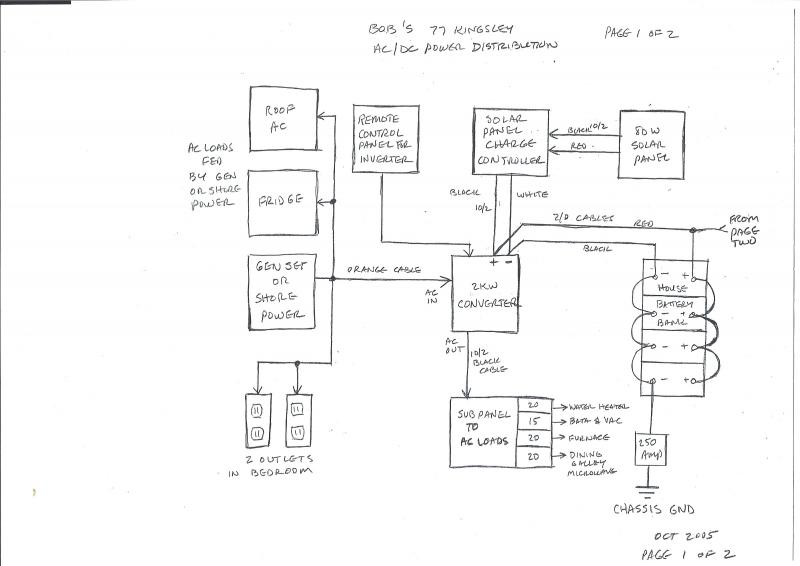 BOB'S 77 KINGSLEY
AC/DC POWER DISTRIBUTION
PAGE 1 OF 2
ROOF
AC
AC LOADS
FED
BY GEN
OR SHORE
POWER
FRIDGE
GEN SET
OR
SHORE
POWER
REMOTE
CONTROL
PANEL FOR
INVERTER
SOLAR
PANEL
CHARGE
CONTROLLER
BLACK 10/2
RED
80W
SOLAR
PANEL
BLACK
10/2
WHITE
2/0 CABLES RED
BLACK
FROM
PAGE
TWO
ORANGE CABLE
AC
IN
+ -
2KW
CONVERTER
- +
HOUSE
BATTERY
- +
BANK
- +
- +
AC
OUT
10/2
BLACK
CABLE
SUB PANEL
TO
AC LOADS
20 WATER HEATER
15 BATH & VAC
20 FURNACE
20 DINING
GALLEY
MICROWAVE
2 OUTLETS
IN BEDROOM
250
AMP
CHASSIS GND
OCT 2005
PAGE 1 OF 2